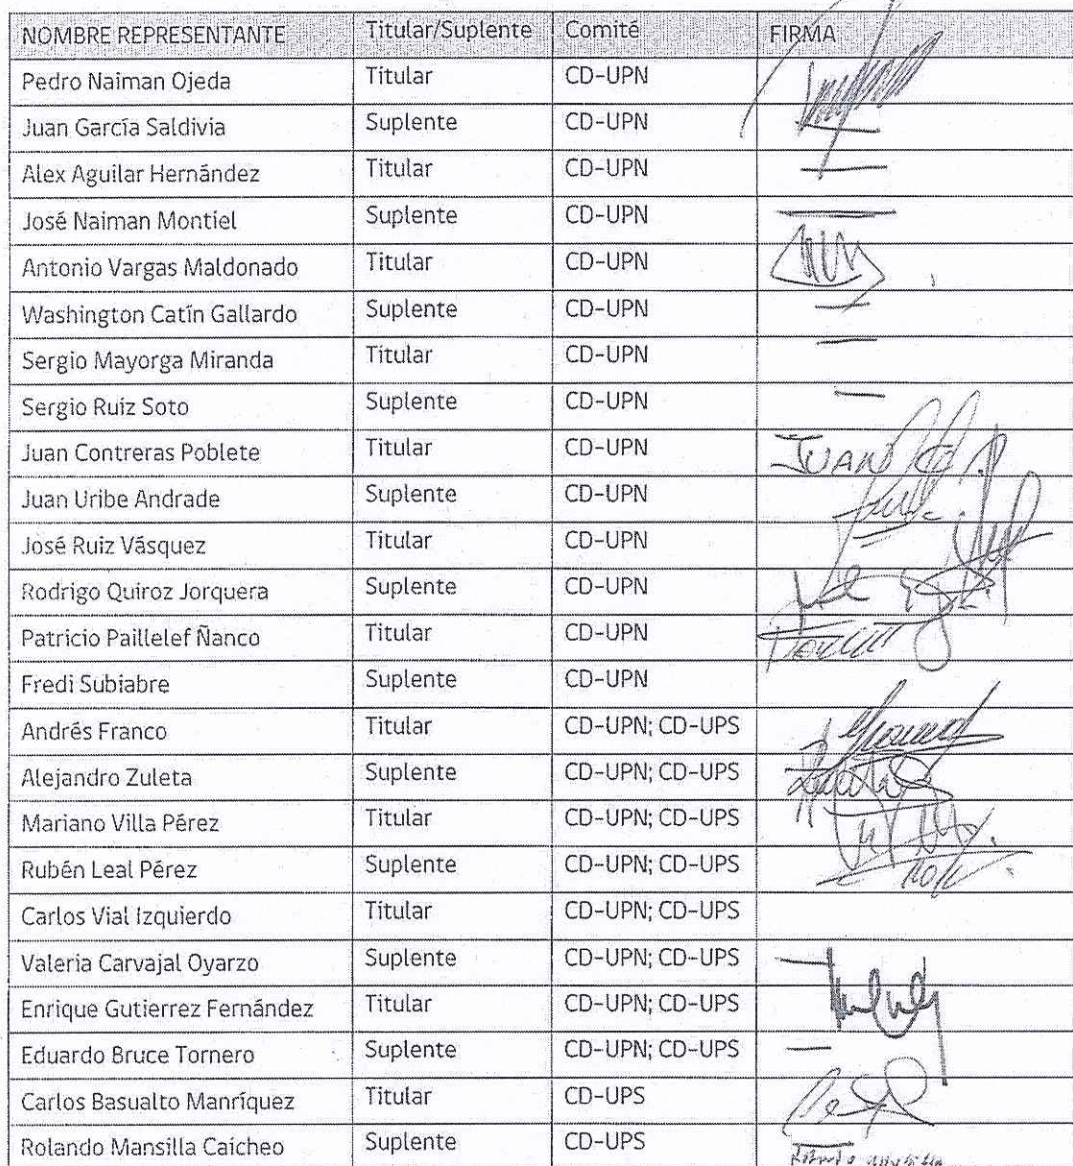 NOMBRE REPRESENTANTE Titular/Suplente Comité FIRMA
Pedro Naiman Ojeda Titular CD-UPN
Juan García Saldivia Suplente CD-UPN
Alex Aguilar Hernández Titular CD-UPN
José Naiman Montiel Suplente CD-UPN
Antonio Vargas Maldonado Titular CD-UPN
Washington Catín Gallardo Suplente CD-UPN
Sergio Mayorga Miranda Titular CD-UPN
Sergio Ruíz Soto Suplente CD-UPN
Juan Contreras Poblete Titular CD-UPN JUAN
Juan Uribe Andrade Suplente CD-UPN
José Ruiz Vásquez Titular CD-UPN
Rodrigo Quiroz Jorquera Suplente CD-UPN
Patricio Paillelef Ñanco Titular CD-UPN
Fredi Subiabre Suplente CD-UPN
Andrés Franco Titular CD-UPN; CD-UPS
Alejandro Zuleta Suplente CD-UPN; CD-UPS
Mariano Villa Pérez Titular CD-UPN; CD-UPS
Rubén Leal Pérez Suplente CD-UPN; CD-UPS
Carlos Vial Izquierdo Titular CD-UPN; CD-UPS
Valeria Carvajal Oyarzo Suplente CD-UPN; CD-UPS
Enrique Gutierrez Fernández Titular CD-UPN; CD-UPS
Eduardo Bruce Tornero Suplente CD-UPN; CD-UPS
Carlos Basualto Manríquez Titular CD-UPS
Rolando Mansilla Caicheo Suplente CD-UPS